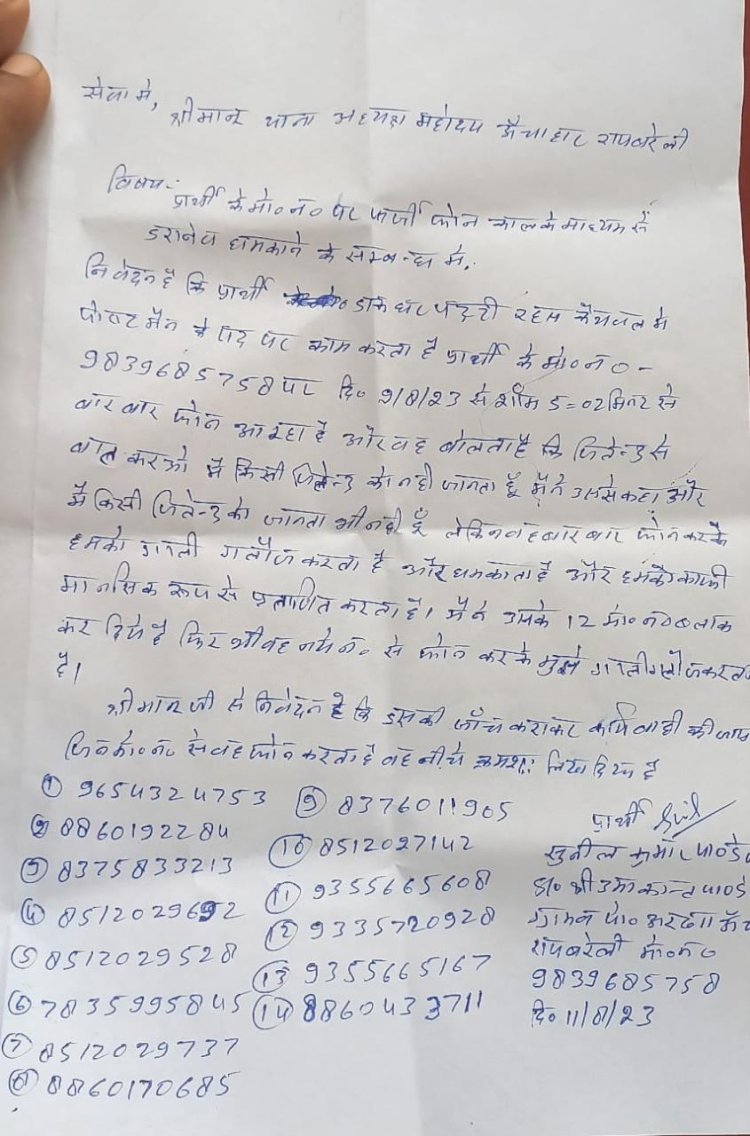 सेवा में,
श्रीमान थाना अध्यक्ष महोदय ऊँचाहार रायबरेली
विषय:-
प्रार्थी के मो०न० पर फर्जी फोन काल के माध्यम से
डराने व धमकाने के सम्बन्ध में,
निवेदन है कि प्रार्थी डाक घर पट्टी रहस कैथवल में
पोस्ट मैन के पद पर काम करता है प्रार्थी के मो० न० -
9839685758 पर दि० 9/8/23 से शाम 5=02 मिनट से
बार बार फोन आ रहा है और वह बोलता है कि जितेन्द्र से
बात कराओ मैं किसी जितेन्द्र को नही जानता हूँ मैंने उससे कहा और
मैं किसी जितेन्द्र को जानता भी नही हूँ लेकिन वह बार बार फोन करके
हमको गाली गलौज करता है और धमकाता है और हमको काफी
मानसिक रूप से प्रताणित करता है। मैंने उसके 12 मो० न० ब्लाक
कर दिये है फिर भी वह नये न० से फोन करके मुझे गाली गलौज करता
है।
श्रीमान जी से निवेदन है कि इसकी जाँच कराकर कार्यवाही की जाय
जिन मो० न० से वह फोन करता है वह नीचे क्रमश: लिख दिया है
① 9654324753 ⑨ 8376011905
② 8860192284 ⑩ 8512027142
③ 8375833213 ⑪ 9355665608
④ 8512029692 ⑫ 9335720928
⑤ 8512029528 ⑬ 9355665167
⑥ 7835995845 ⑭ 8860433711
⑦ 8512029737
⑧ 8860170685
प्रार्थी
सुनील कुमार पाण्डे
S/० श्री उमा कान्त पाण्डे
ग्राम व पो० अरखा
रायबरेली मो० न०
9839685758
दि० 11/8/23